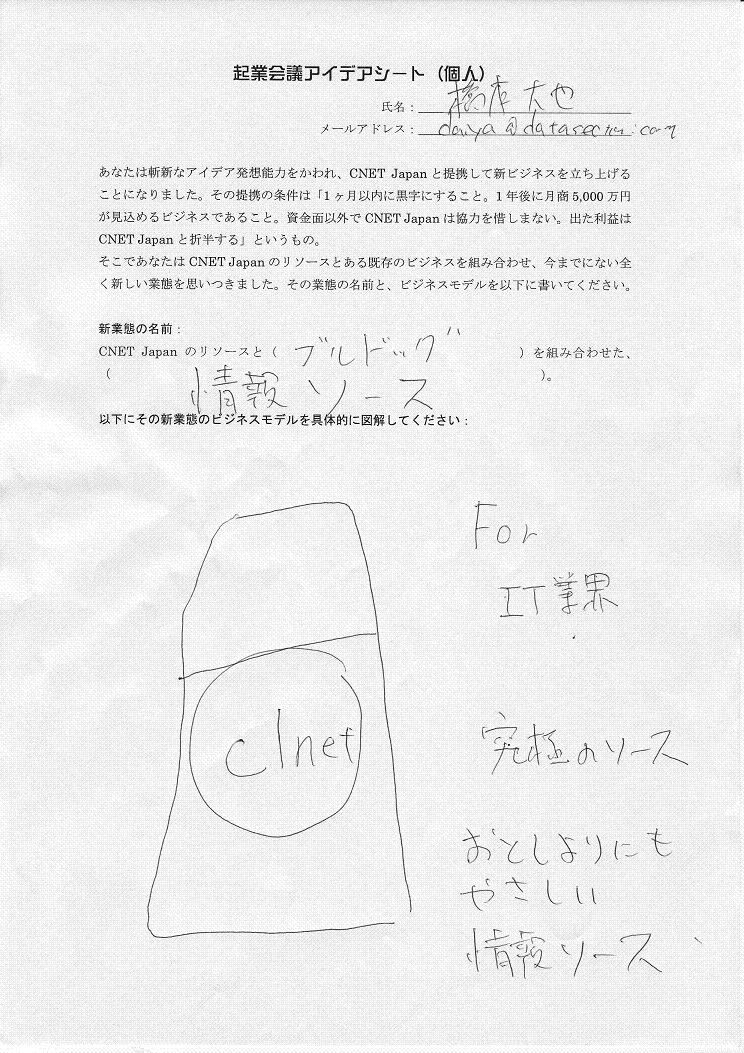 起業会議アイデアシート（個人）
氏名： 橋本 大也
メールアドレス： daiya@datasection.com
あなたは斬新なアイデア発想能力をかわれ、CNET Japan と提携して新ビジネスを立ち上げる
ことになりました。その提携の条件は「1 ヶ月以内に黒字にすること。1 年後に月商 5,000 万円
が見込めるビジネスであること。資金面以外で CNET Japan は協力を惜しまない。出た利益は
CNET Japan と折半する」というもの。
そこであなたは CNET Japan のリソースとある既存のビジネスを組み合わせ、今までにない全
く新しい業態を思いつきました。その業態の名前と、ビジネスモデルを以下に書いてください。
新業態の名前：
CNET Japan のリソースと（ ブルドッグ ）を組み合わせた、
（ 情報ソース ）。
以下にその新業態のビジネスモデルを具体的に図解してください：
For
IT業界
c|net
究極のソース
おとしよりにも
やさしい
情報ソース